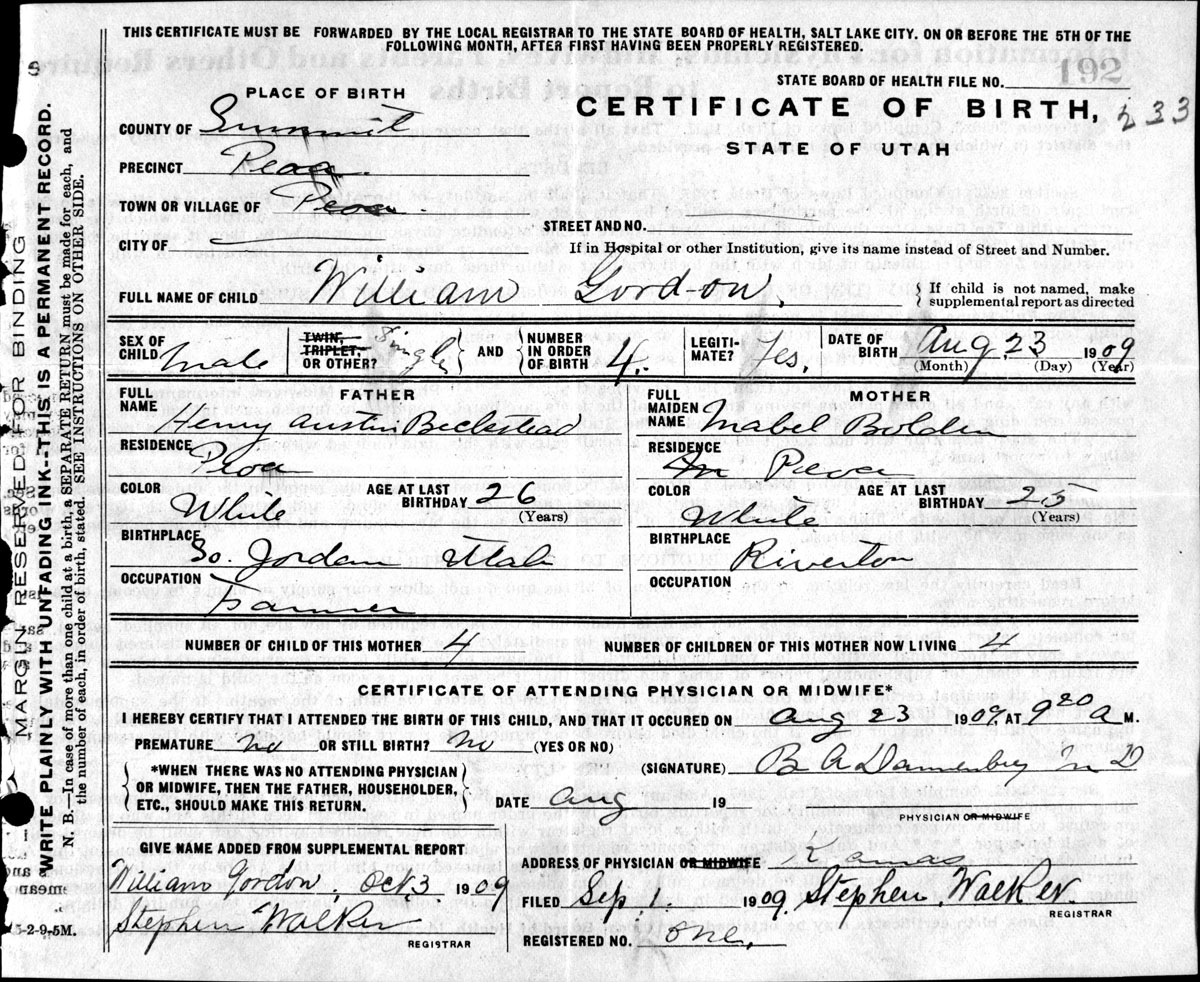 THIS CERTIFICATE MUST BE FORWARDED BY THE LOCAL REGISTRAR TO THE STATE BOARD OF HEALTH, SALT LAKE CITY, ON OR BEFORE THE 5TH OF THE
FOLLOWING MONTH, AFTER FIRST HAVING BEEN PROPERLY REGISTERED.
192
STATE BOARD OF HEALTH FILE NO.
PLACE OF BIRTH
CERTIFICATE OF BIRTH, 233
STATE OF UTAH
COUNTY OF Summit
PRECINCT Peoa.
TOWN OR VILLAGE OF Peoa.
STREET AND NO.
CITY OF
If in Hospital or other Institution, give its name instead of Street and Number.
FULL NAME OF CHILD William Gordon.
If child is not named, make
supplemental report as directed
SEX OF CHILD male
TWIN, TRIPLET, OR OTHER? Single AND NUMBER IN ORDER OF BIRTH 4.
LEGITI-MATE? Yes.
DATE OF BIRTH Aug 23 1909
(Month) (Day) (Year)
FATHER
FULL NAME Henry Austin Beckstead
RESIDENCE Peoa
COLOR White AGE AT LAST BIRTHDAY 26 (Years)
BIRTHPLACE So. Jordan Utah
OCCUPATION Farmer
MOTHER
FULL MAIDEN NAME Mabel
RESIDENCE Peoa
COLOR White AGE AT LAST BIRTHDAY 25 (Years)
BIRTHPLACE Riverton
OCCUPATION
NUMBER OF CHILD OF THIS MOTHER 4 NUMBER OF CHILDREN OF THIS MOTHER NOW LIVING 4
CERTIFICATE OF ATTENDING PHYSICIAN OR MIDWIFE*
I HEREBY CERTIFY THAT I ATTENDED THE BIRTH OF THIS CHILD, AND THAT IT OCCURED ON Aug 23 1909. AT 9 20 a M.
PREMATURE no OR STILL BIRTH? no (YES OR NO)
*WHEN THERE WAS NO ATTENDING PHYSICIAN
OR MIDWIFE, THEN THE FATHER, HOUSEHOLDER,
ETC., SHOULD MAKE THIS RETURN.
(SIGNATURE) B A M D
DATE aug 19
PHYSICIAN OR MIDWIFE
GIVE NAME ADDED FROM SUPPLEMENTAL REPORT
William Gordon. Oct 3 1909
Stephen Walker
REGISTRAR
ADDRESS OF PHYSICIAN OR MIDWIFE Kamas
FILED Sep. 1 1909, Stephen Walker.
REGISTRAR
REGISTERED NO. One.
5-2-9,5M.
MARGIN RESERVED FOR BINDING
WRITE PLAINLY WITH UNFADING INK--THIS IS A PERMANENT RECORD.
N. B.—In case of more than one child at a birth, a SEPARATE RETURN must be made for each, and
the number of each, in order of birth, stated. SEE INSTRUCTIONS ON OTHER SIDE.